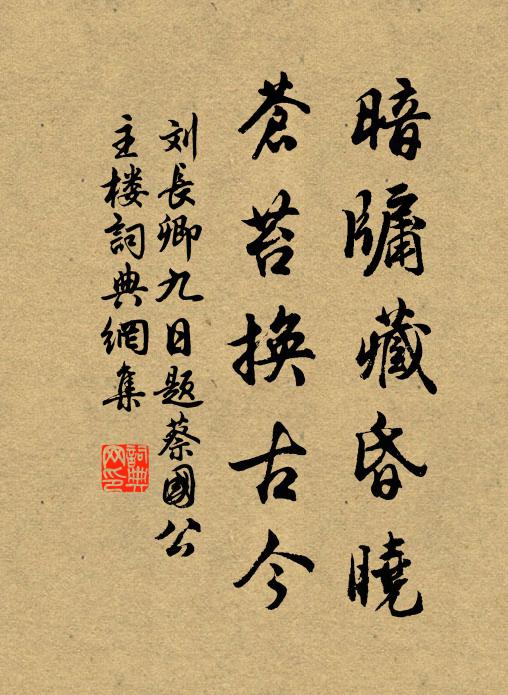 暗牖藏昏曉
蒼苔換古今
刘長卿九日題蔡國公
主楼詞典網集
詞典
网印